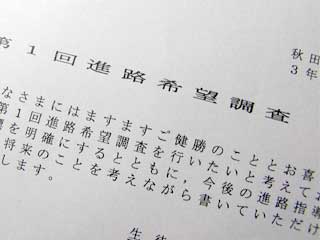 秋田
3年
第1回進路希望調査
なさまにはますますご健勝のこととお喜
第1回進路希望調査を行いたいと考えてお
を明確にするとともに,今後の進路指導
将来のことを考えながら書いていただけ
します。
生徒